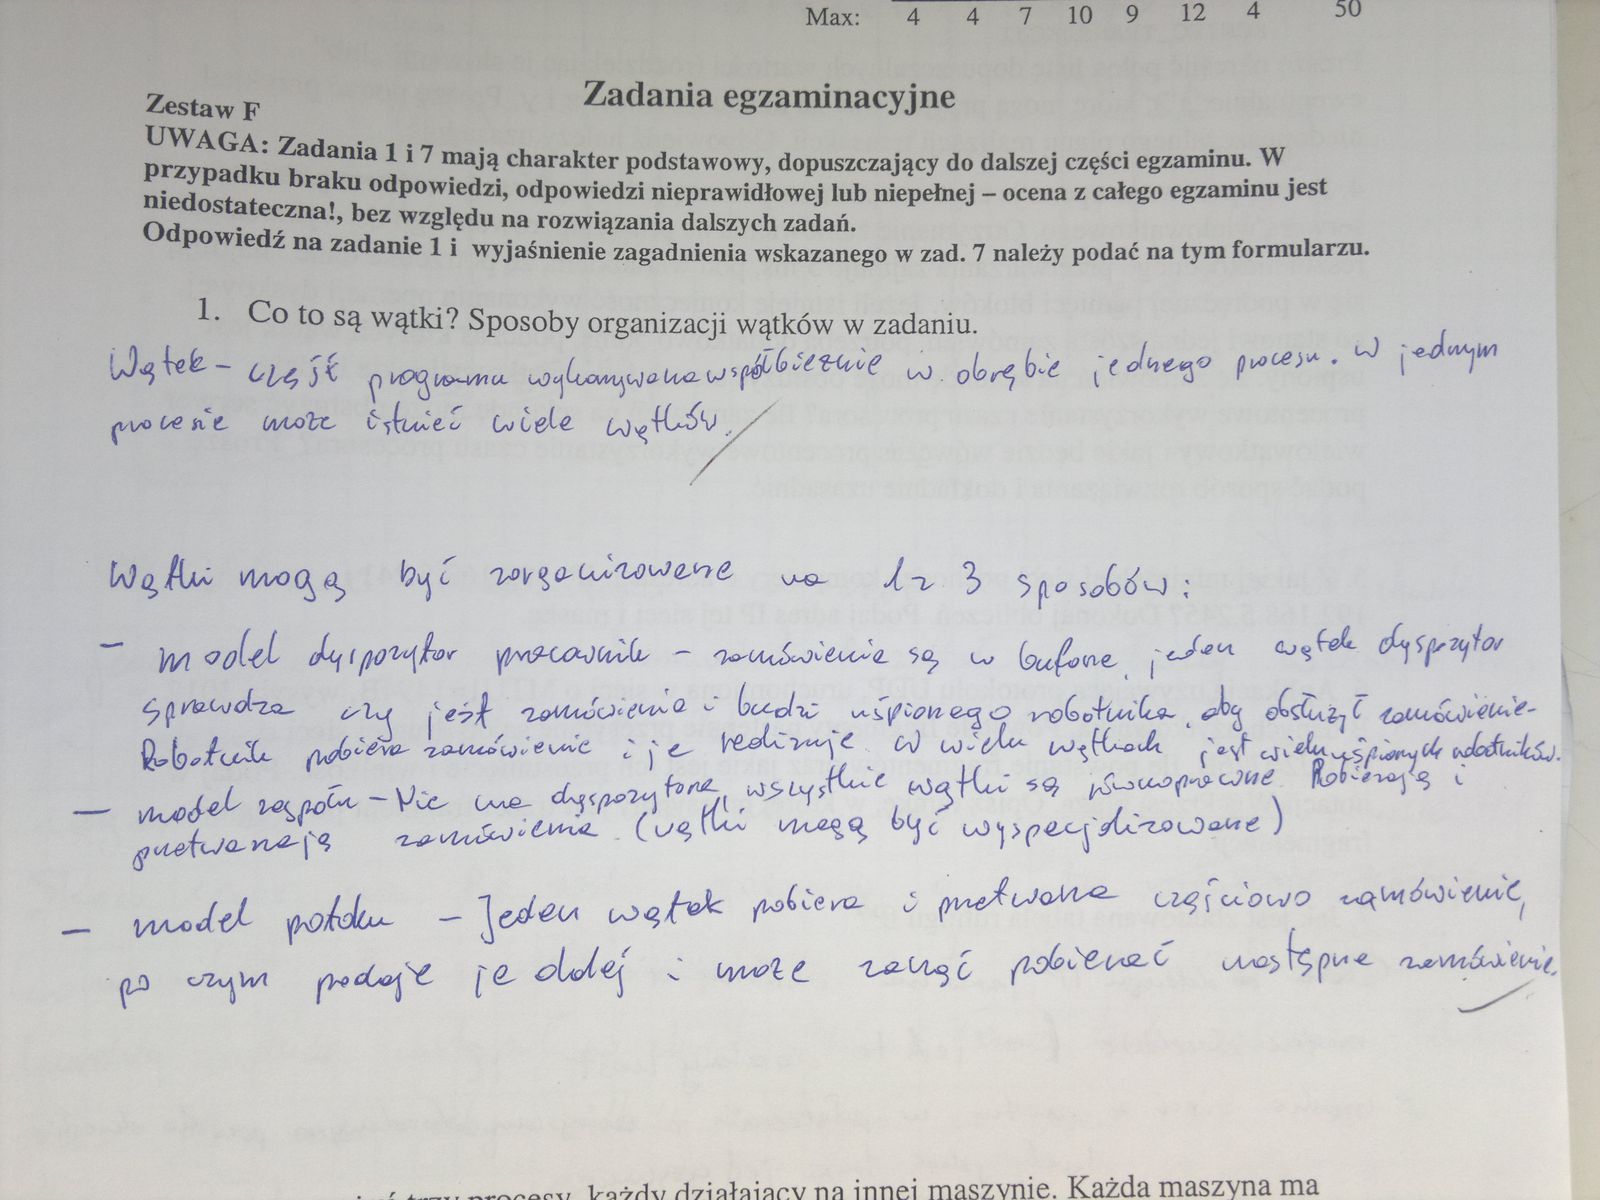 Max: 4 4 7 10 9 12 4 50
Zadania egzaminacyjne
Zestaw F
UWAGA: Zadania 1 i 7 mają charakter podstawowy, dopuszczający do dalszej części egzaminu. W
przypadku braku odpowiedzi, odpowiedzi nieprawidłowej lub niepełnej – ocena z całego egzaminu jest
niedostateczna!, bez względu na rozwiązania dalszych zadań.
Odpowiedź na zadanie 1 i wyjaśnienie zagadnienia wskazanego w zad. 7 należy podać na tym formularzu.
1. Co to są wątki? Sposoby organizacji wątków w zadaniu.
Wątek - część programu wykonywana współbieżnie w obrębie jednego procesu. W jednym
procesie może istnieć wiele wątków.
Wątki mogą być zorganizowane na 1 z 3 sposobów:
- model dyspozytor pracownik - zamówienia są w buforze, jeden wątek dyspozytor
sprawdza czy jest zamówienie i budzi uśpionego robotnika, aby obsłużył zamówienie.
Robotnik pobiera zamówienie i je realizuje. W wielu wątkach jest wielu uśpionych robotników.
- model zespołu - Nie ma dyspozytora, wszystkie wątki są równoprawne. Pobierają i
przetwarzają zamówienia (wątki mogą być wyspecjalizowane)
- model potoku - Jeden wątek pobiera i przetwarza częściowo zamówienie,
po czym podaje je dalej i może zacząć pobierać następne zamówienie.
trzy procesy, każdy działający na innej maszynie. Każda maszyna ma